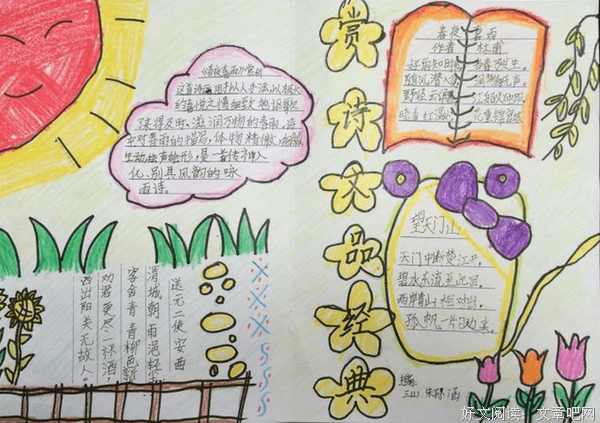 赏诗文品经典
春夜喜雨
作者 杜甫
好雨知时节 当春乃发生
随风潜入夜 润物细无声
野径云俱黑 江船火独明
晓看红湿处 花重锦官城
《春夜喜雨》赏析
这首诗运用拟人手法,以极大
的喜悦之情细致地
及时、滋润万物的春雨,
对春雨的描写,体物精微,
生动,绘声绘形,是一首传神入
化,别具风韵的咏
雨诗。
望天门山
天门中断楚江开,
碧水东流至此回。
两岸青山相对出,
孤帆一片日边来。
送元二使安西
渭城朝雨浥轻尘
客舍青青柳色新
劝君更尽一杯酒,
西出阳关无故人。
好文阅读:文章吧网